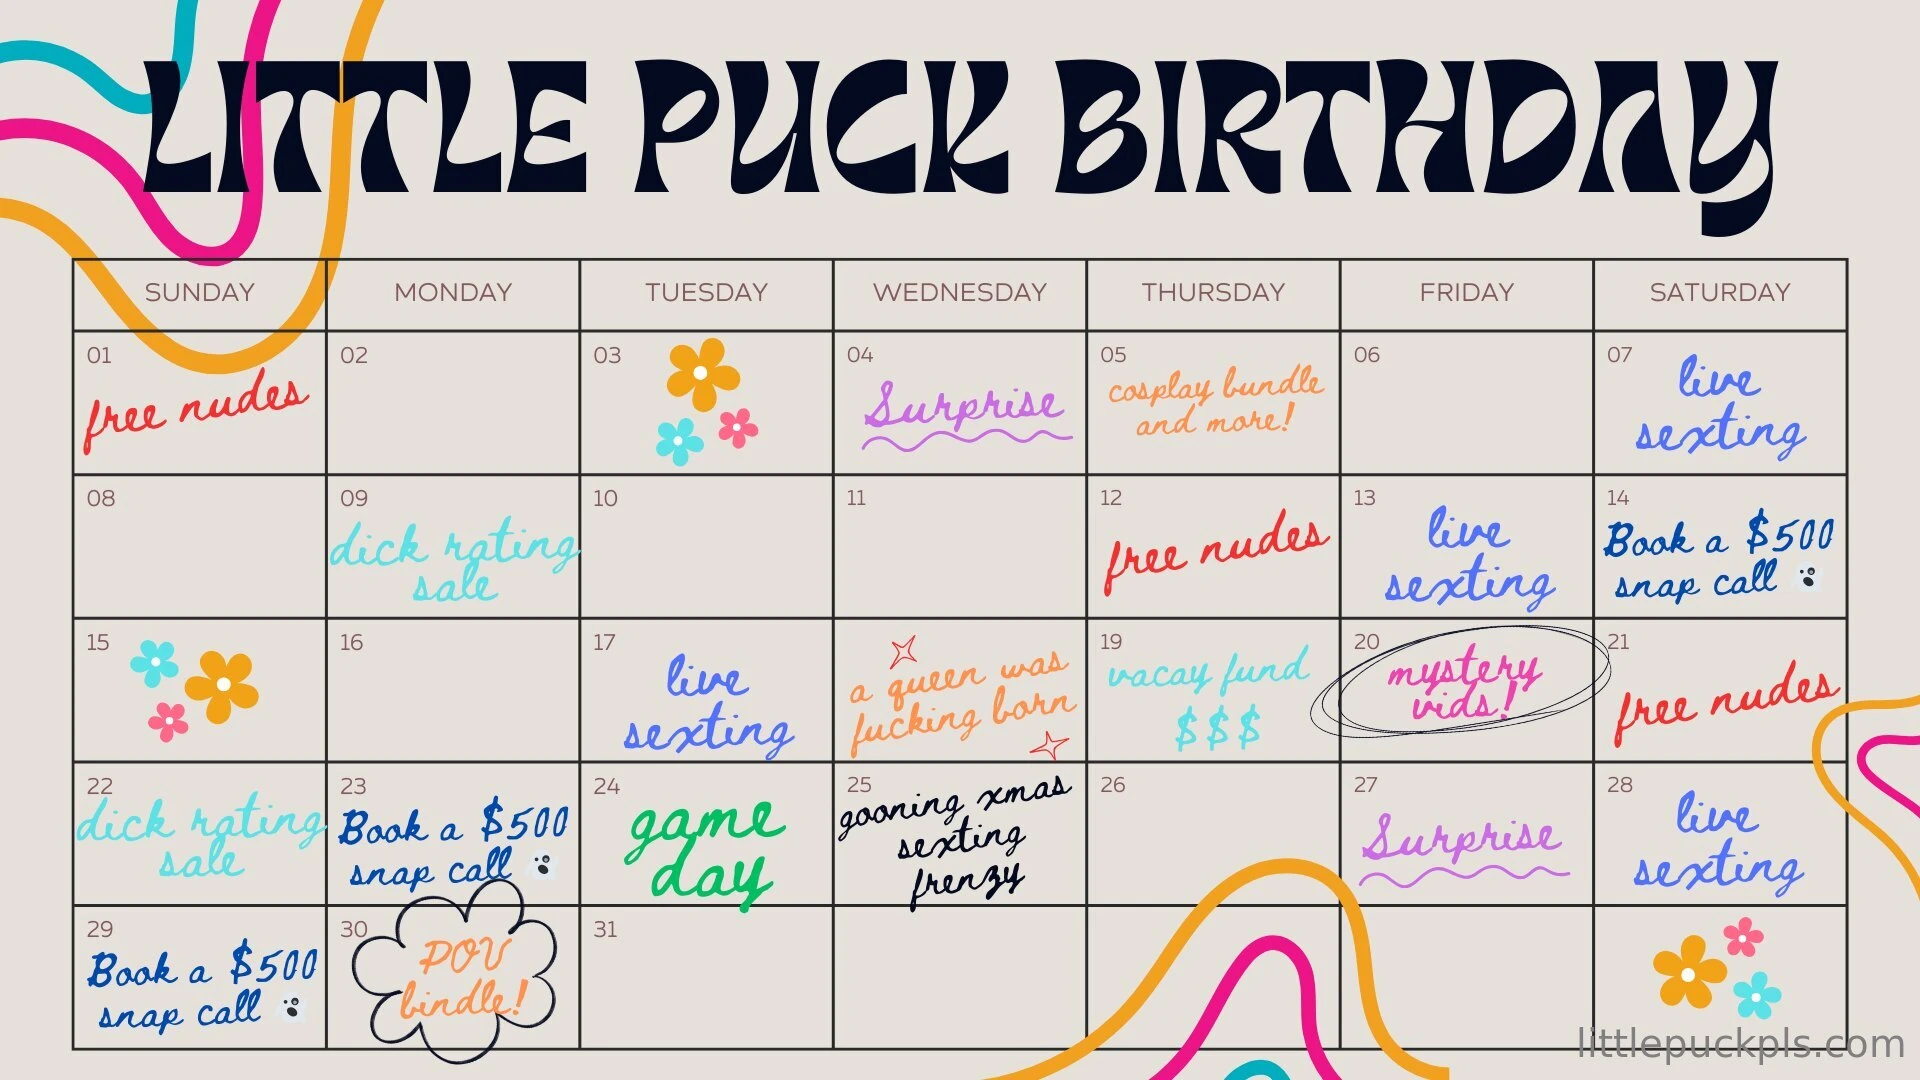 LITTLE PUCK BIRTHDAY
SUNDAY
MONDAY
TUESDAY
WEDNESDAY
THURSDAY
FRIDAY
SATURDAY
01
free nudes
02
03
04
Surprise
05
cosplay bundle
and more!
06
07
live
sexting
08
09
dick rating
sale
10
11
12
free nudes
13
live
sexting
14
Book a $500
snap call
15
16
17
live
sexting
a queen was
fucking born
19
vacay fund
$$$
20
mystery
vids!
21
free nudes
22
dick rating
sale
23
Book a $500
snap call
24
game
day
25
gooning xmas
sexting
frenzy
26
27
Surprise
28
live
sexting
29
Book a $500
snap call
30
POV
bindle!
31
littlepuckpls.com